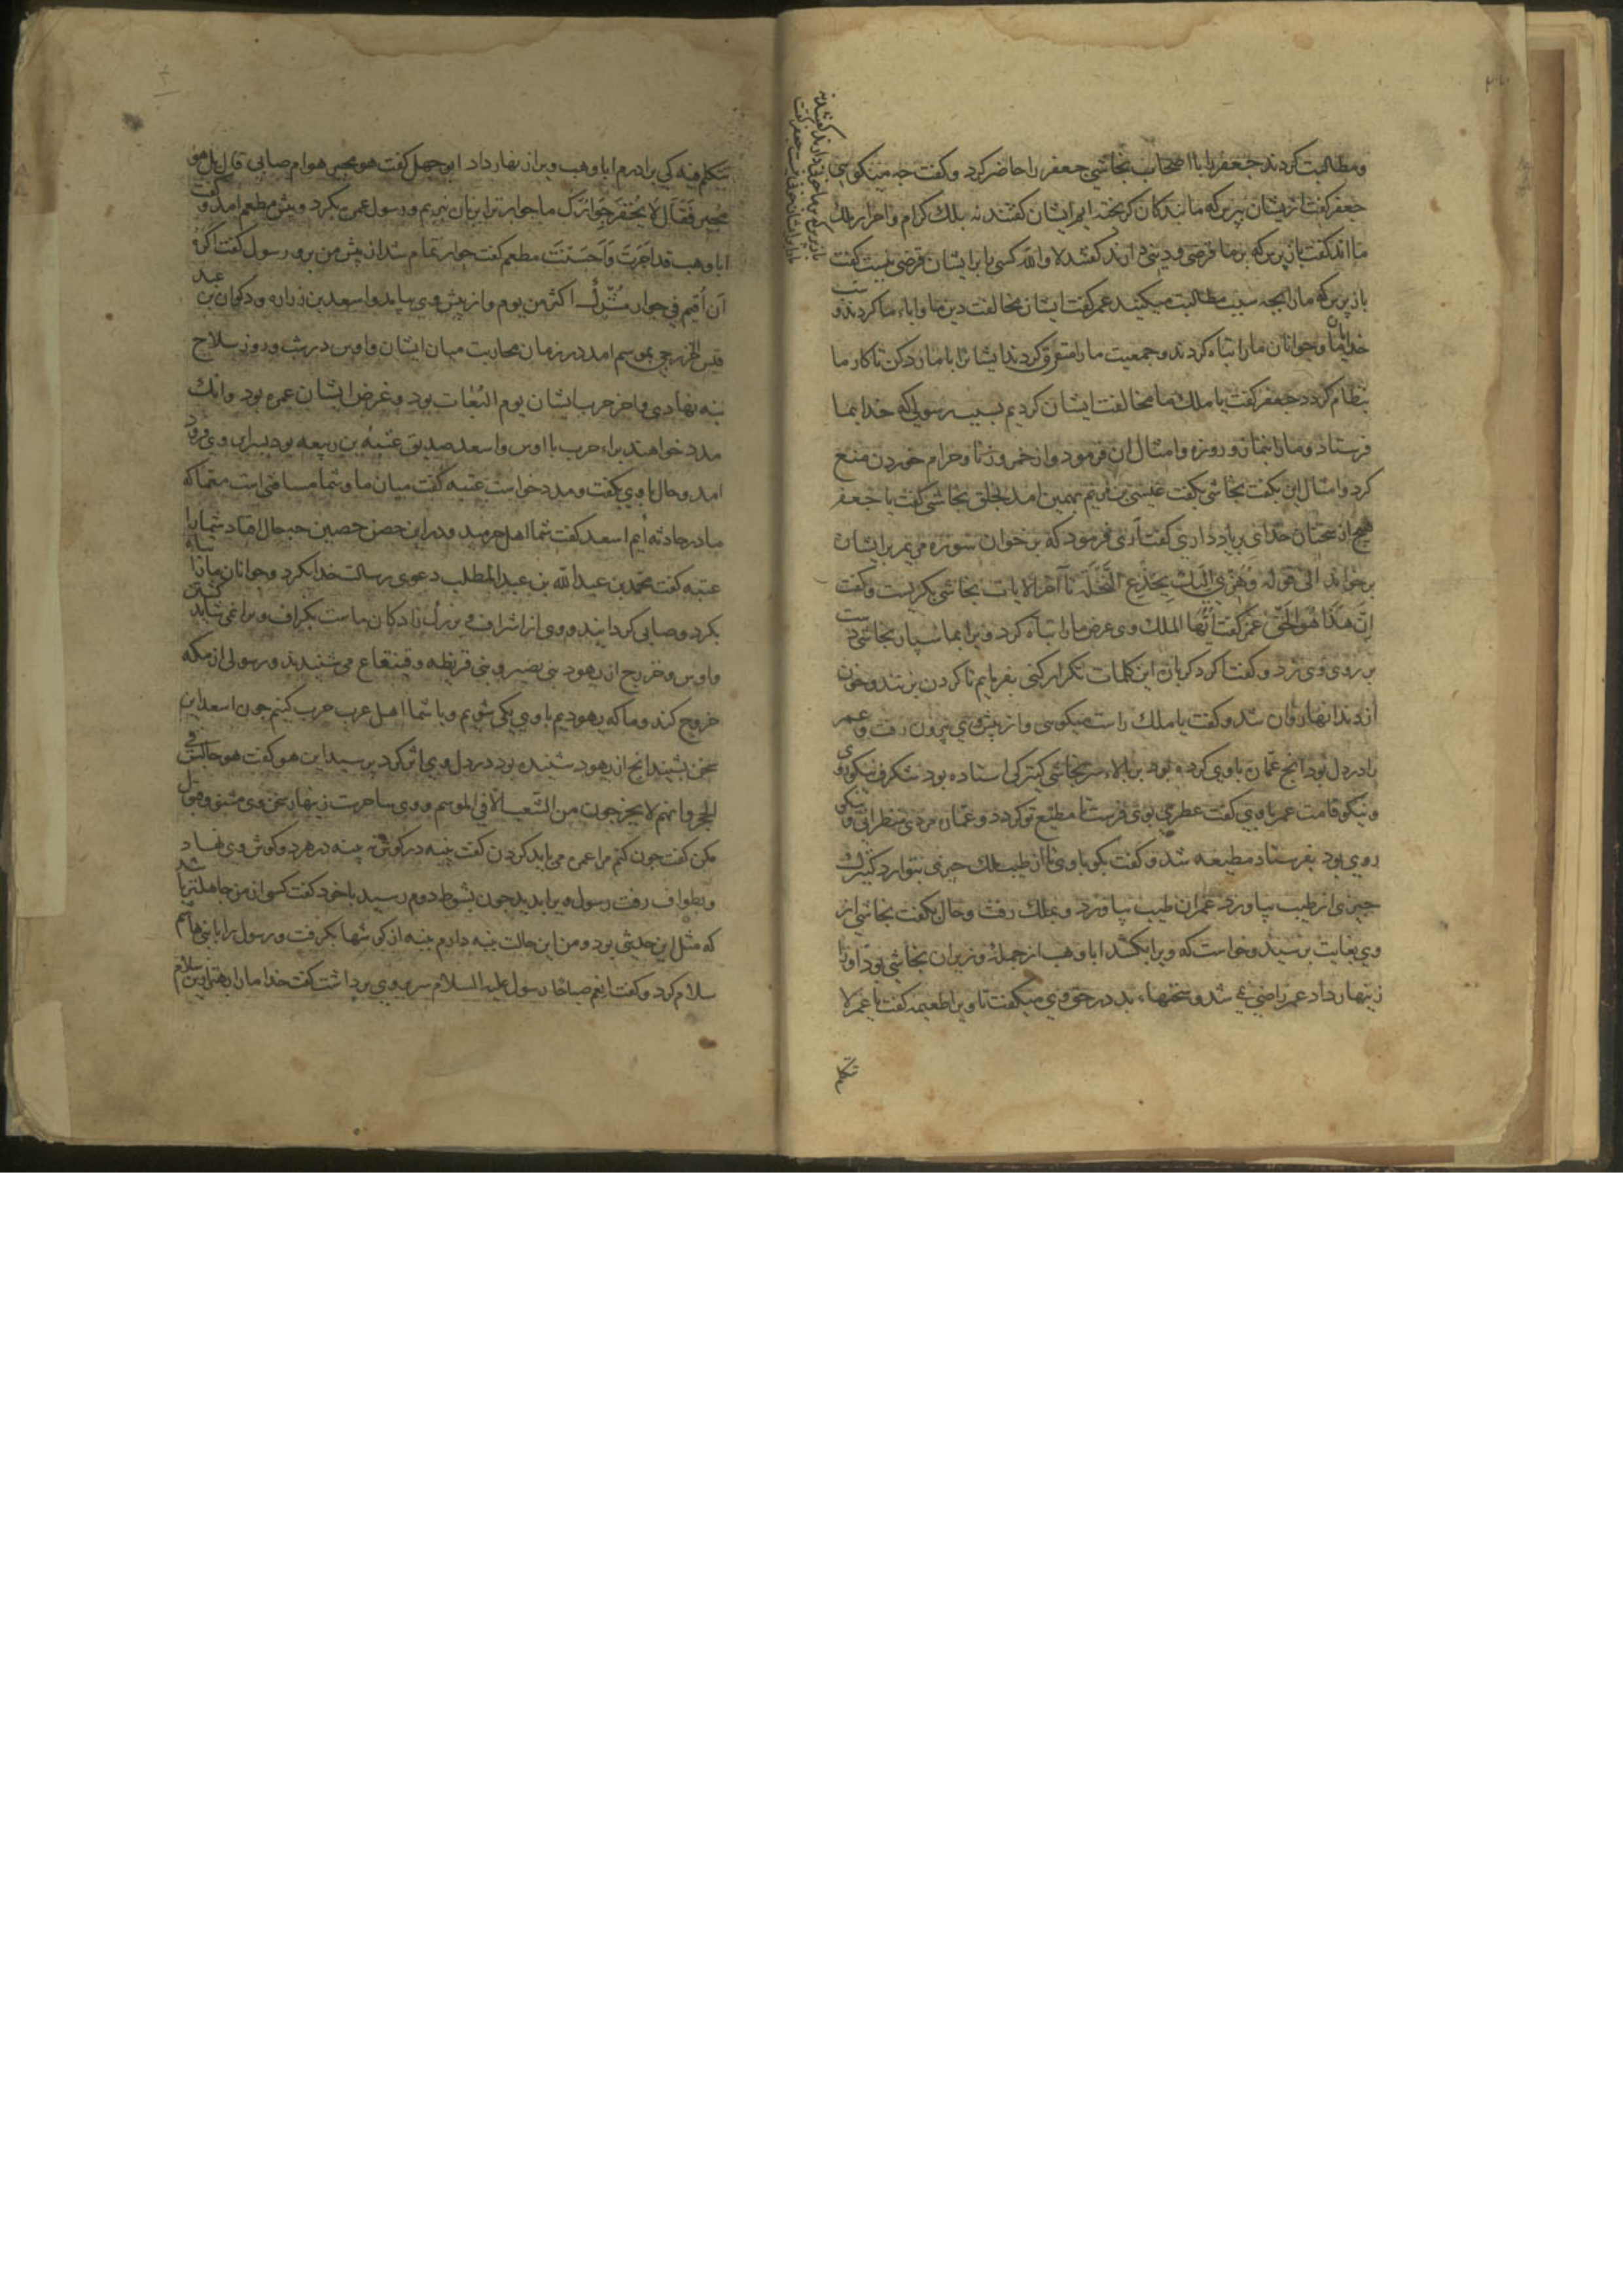 ومطالبت کردند جعفر را با اصحاب نجاشی جعفر را حاضر کرد و گفت چه میگوئی
جعفر گفت از ایشان بپرس که ما بندکان کریخته ایم ایشان گفتند نه بلک کرام و احرار ملک
ما اند گفت باز پرس که بر ما قرضی و دینی دارند گفتند لا والله کسی را بر ایشان قرضی نیست گفت
باز پرس که ما را بچه سبب مطالبت میکنید عمر گفت ایشان مخالفت دین ما و اباء ما کردند و
خدایان ما و جوانان ما را تباه کردند و جمعیت ما را متفرق کردند ایشانرا با ما رد کن تا کار ما
بنظام کردد جعفر گفت یا ملک ما مخالفت ایشان کردیم بسبب رسولی که خدا بما
فرستاد و ما را بنماز و روزه و امثال ان فرمود و از خمر و زنا و حرام خوردن منع
کرد و امثال این بگفت نجاشی بگفت عیسی بن مریم بهمین امد بخلق نجاشی گفت یا جعفر
هیچ از سخنان خدای بر یاد داری گفت آری فرمود که بر خوان سوره مریم بر ایشان
بر خواند الی قوله وَهُزِّي إِلَيْكِ بِجِذْعِ النَّخْلَة تا آخر الایات نجاشی بگریست و گفت
اِنَّ هَذَا هُوَ الحَقّ عمر گفت اَیُّها الملک وی عرض ما را تباه کرد ویرا بما سپار نجاشی دست
بر روی وی زد و گفت اکر دکر باره این کلمات تکرار کنی بفرمایم تا کردن بزنند و خون
از دندانها روان شد و گفت یا ملک راست میگویی و از پیش وی بیرون رفت و عمر
را در دل بود انج عمان با وی کرده بود بر بالاء سر نجاشی کنیزکی استاده بود شکرف نیکو روی
و نیکو قامت عمر با وی گفت عطری بوی فرست تا مطیع تو کردد و عمان مردی منظرانی و نیکو
روی بود بفرستاد مطیعه شد و گفت بکو با وی تا از طیب ملک چیزی بتو ارد کنیزک
چیزی از طیب بیاورد عمر ان طیب بیاورد و بملک رفت و حال بگفت نجاشی از
وی بغایت برسید و خواست که ویرا بکشد اباوهب از جمله وزیران نجاشی بود او را
زینهار داد عمر راضی نمی شد و سخنهاء بد در حق وی میگفت تا ویرا طعیمه گفت یا عمر لا
تتکلم
تتکلم فیه کی برادرم اباوهب ویرا زنهار داد ابوجهل گفت هو مجیر هو ام صابی قال بل هو
مُجیر فَقَالَ لا یُخفَر جَوَارُک ما جوار ترا زیان نبریم و رسول عمره بکرد و پیش مطعم امد و گفت
اباوهب قد اَجَرتَ وَاَحسَنتَ مطعم گفت جوار تمام شد از پیش من برو رسول گفت اکره
اَن اُقیم فی جوار مُشرِکٍ اکثر من یوم و از پیش وی بیامد و اسعد بن زراره و ذکوان بن عبد
قیس الخزرجی بموسم امد در زمان محاربت میان ایشان و اوس در شب و روز سلاح
بنه نهادی و اخر حرب ایشان یوم البُعَاث بود و غرض ایشان عمره بود و انک
مدد خواهند براء حرب با اوس و اسعد صدیق عتبه بن ربیعه بود بسرای وی فرود
امد و حال با وی بگفت و مدد خواست عتبه گفت میان ما و شما مسافتی است معما که
ما در حادثه ایم اسعد گفت شما اهل حرمید و در این حصن حصین چه حال افتاد شما را
عتبه گفت محمد بن عبدالله بن عبدالمطلب دعوی رسالت خدا بکرد و جوانان ما را تباه
بکرد و صابی کردانید و وی از اشراف و بزرک زادکان ماست بکزاف ویرا نمی شاید کشتن
و اوس و خزرج از یهود بنی نضیر و بنی قریظه و قینقاع می شنیدند و رسولی از مکه
خروج کند و ما که یهودیم با وی یکی شویم و با شما اهل عرب حرب کنیم چون اسعد این
سخن بشنید انچ از یهود شنیده بود در دل وی اثر کرد پرسید این هو گفت هو جالس فی
الحجر و انهم لا یخرجون من الشعب الّا فی الموسم و وی ساحرست زینهار سخن وی مشنو و قبول
مکن گفت چون کنم مرا عمره می باید کردن گفت پنبه در کوش نه پنبه در هر دو کوش وی نهاد
و بطواف رفت رسول ویرا بدید چون بشوط دوم رسید با خود گفت کسی از من جاهلتر باشد
که مثل این حدیثی بود و من این حالت پنبه دارم پنبه از کوشها بکرفت و رسول را با بنی هاشم
سلام کرد و گفت انعم صباحا رسول علیه السلام سر بروی برداشت گفت خدا ما را بهتر ازین سلام